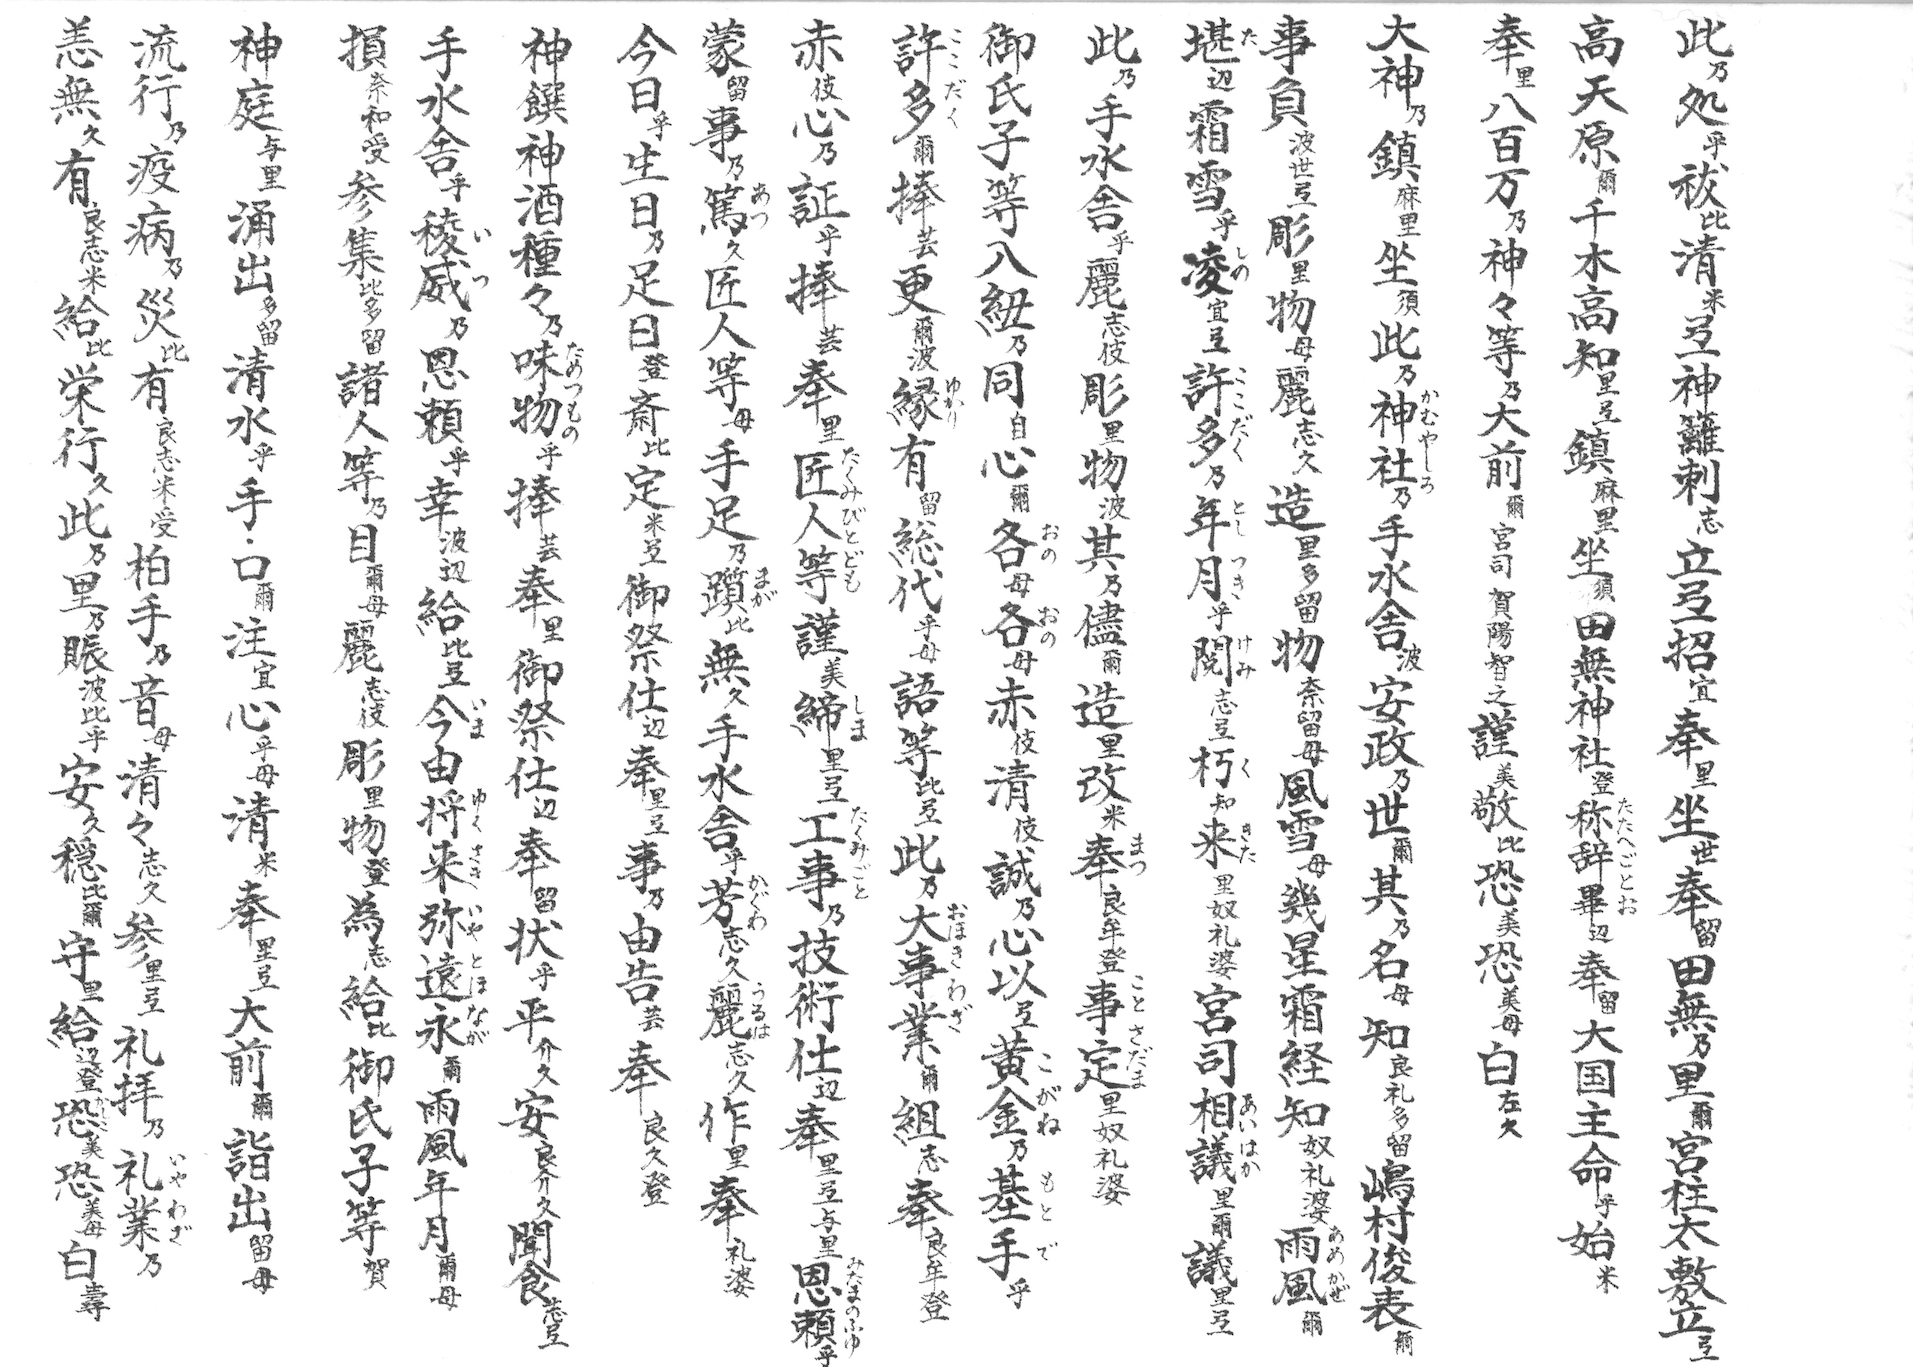 此乃処乎祓比清米弖神籬刺志立弖招宜奉里坐世奉留田無乃里爾宮柱太敷立弖
高天原爾千木高知里弖鎮麻里坐須田無神社登称辞畢辺奉留大国主命乎始米
奉里八百万乃神々等乃大前爾宮司賀陽智之謹美敬比恐美恐美母白左久
大神乃鎮麻里坐須此乃神社乃手水舎波安政乃世爾其乃名母知良礼多留嶋村俊表爾
事負波世弖彫里物母麗志久造里多留物奈留母風雪母幾星霜経知奴礼婆雨風爾
堪辺霜雪乎凌宜弖許多乃年月乎閲志弖朽知来里奴礼婆宮司相議里爾議里弖
此乃手水舎乎麗志伎彫里物波其乃儘爾造里改米奉良牟登事定里奴礼婆
御氏子等八紐乃同自心爾各母各母赤伎清伎誠乃心以弖黄金乃基手乎
許多爾捧芸更爾波縁有留総代乎母語等比弖此乃大事業爾組志奉良牟登
赤伎心乃証乎捧芸奉里匠人等謹美締里弖工事乃技術仕辺奉里弖与里恩頼乎
蒙留事乃篤久匠人等母手足乃躓比無久手水舎乎芳志久麗志久作里奉礼婆
今日乎生日乃足日登斎比定米弖御祭仕辺奉里弖事乃由告芸奉良久登
神饌神酒種々乃味物乎捧芸奉里御祭仕辺奉留状乎平介久安良介久聞食志弖
手水舎乎稜威乃恩頼乎幸波辺給比弖今由将来弥遠永爾雨風年月爾母
損奈和受参集比多留諸人等乃目爾母麗志伎彫里物登為志給比御氏子等賀
神庭与里涌出多留清水乎手・口爾注宜心乎母清米奉里弖大前爾詣出留母
流行乃疫病乃災比有良志米受柏手乃音母清々志久参里弖礼拝乃礼業乃
恙無久有良志米給比栄行久此乃里乃賑波比乎安久穏比爾守里給辺登恐美恐美母白壽